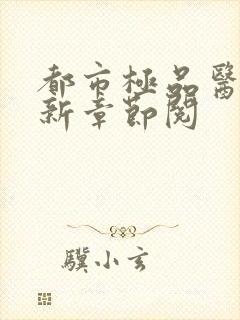 都市極品醫
新章節閱
驥小玄